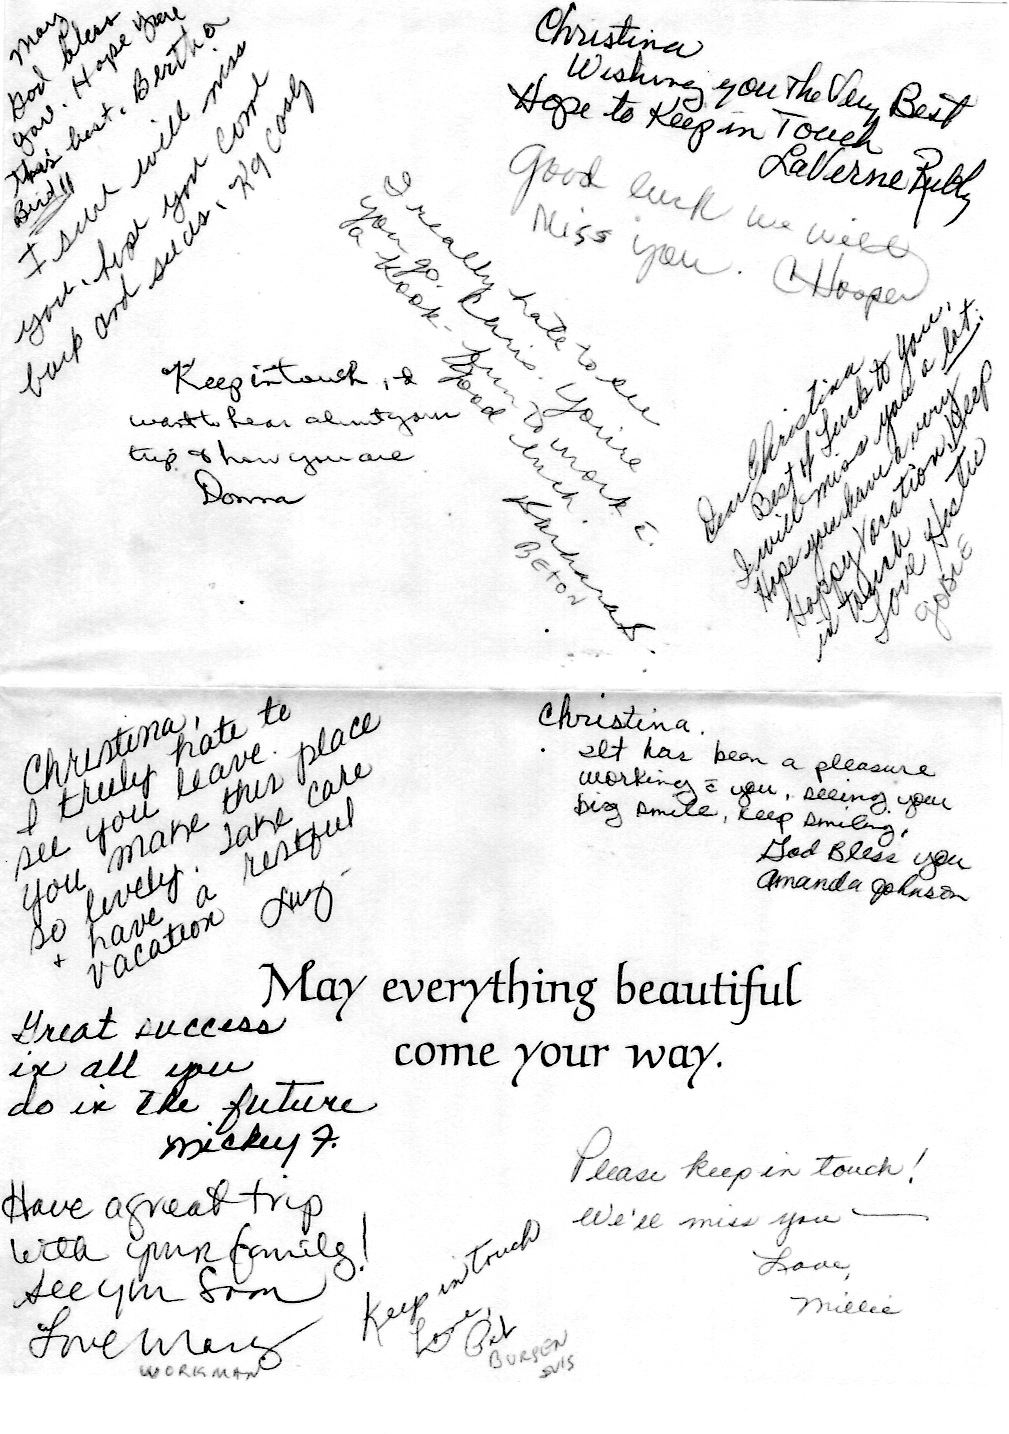 Mary
God bless
you. Hope you're
this best. Bertha
Bird
I sure will miss
you, hope you come
back and see us. Kg
Christina
Wishing you The Very Best
Hope to Keep in Touch
LaVerne
Good luck we will
Miss you. C Hooper
I really hate to see
you go. You're
a fun to work c̄.
Good luck.
BETON
Keep in touch, I
want to hear about your
trip & how you are
Donna
Dear Christina
Best of Luck to you,
I will miss you a lot.
Hope you have a very
Happy Vacation. Keep
in touch
Love
Christina,
I truly hate to
see you leave.
You make this place
so lovely. Take care
+ have a restful
vacation
Christina.
It has been a pleasure
working c̄ you, seeing your
big smile, keep smiling,
God Bless you
Amanda Johnson
May everything beautiful
come your way.
Great success
in all you
do in the future
Mickey F.
Have a great trip
with your family!
See you Soon
Love Mary
WORKMAN
Keep in touch
Love,
Pat
Please keep in touch!
We'll miss you —
Love,
Millie